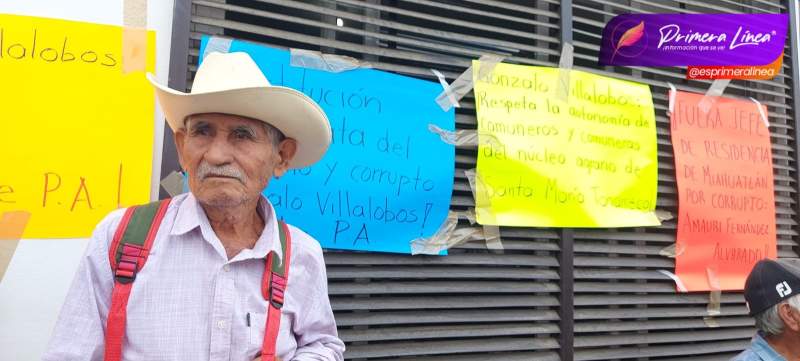 Villalobos
e P.A!
lución
ata del
y corrupto
alo Villalobos!
P.A
Gonzalo Villalobos:
Respeta la autonomía de
comuneros y comuneras
del núcleo agrario de
Santa María Tonameca!
¡FUERA JEFE
DE RESIDENCIA
DE MIAHUATLÁN
POR CORRUPTO:
AMAURI FERNÁNDEZ
ALVARADO!!
Primera Línea®
¡información que se ve!
@esprimeralinea
FJ